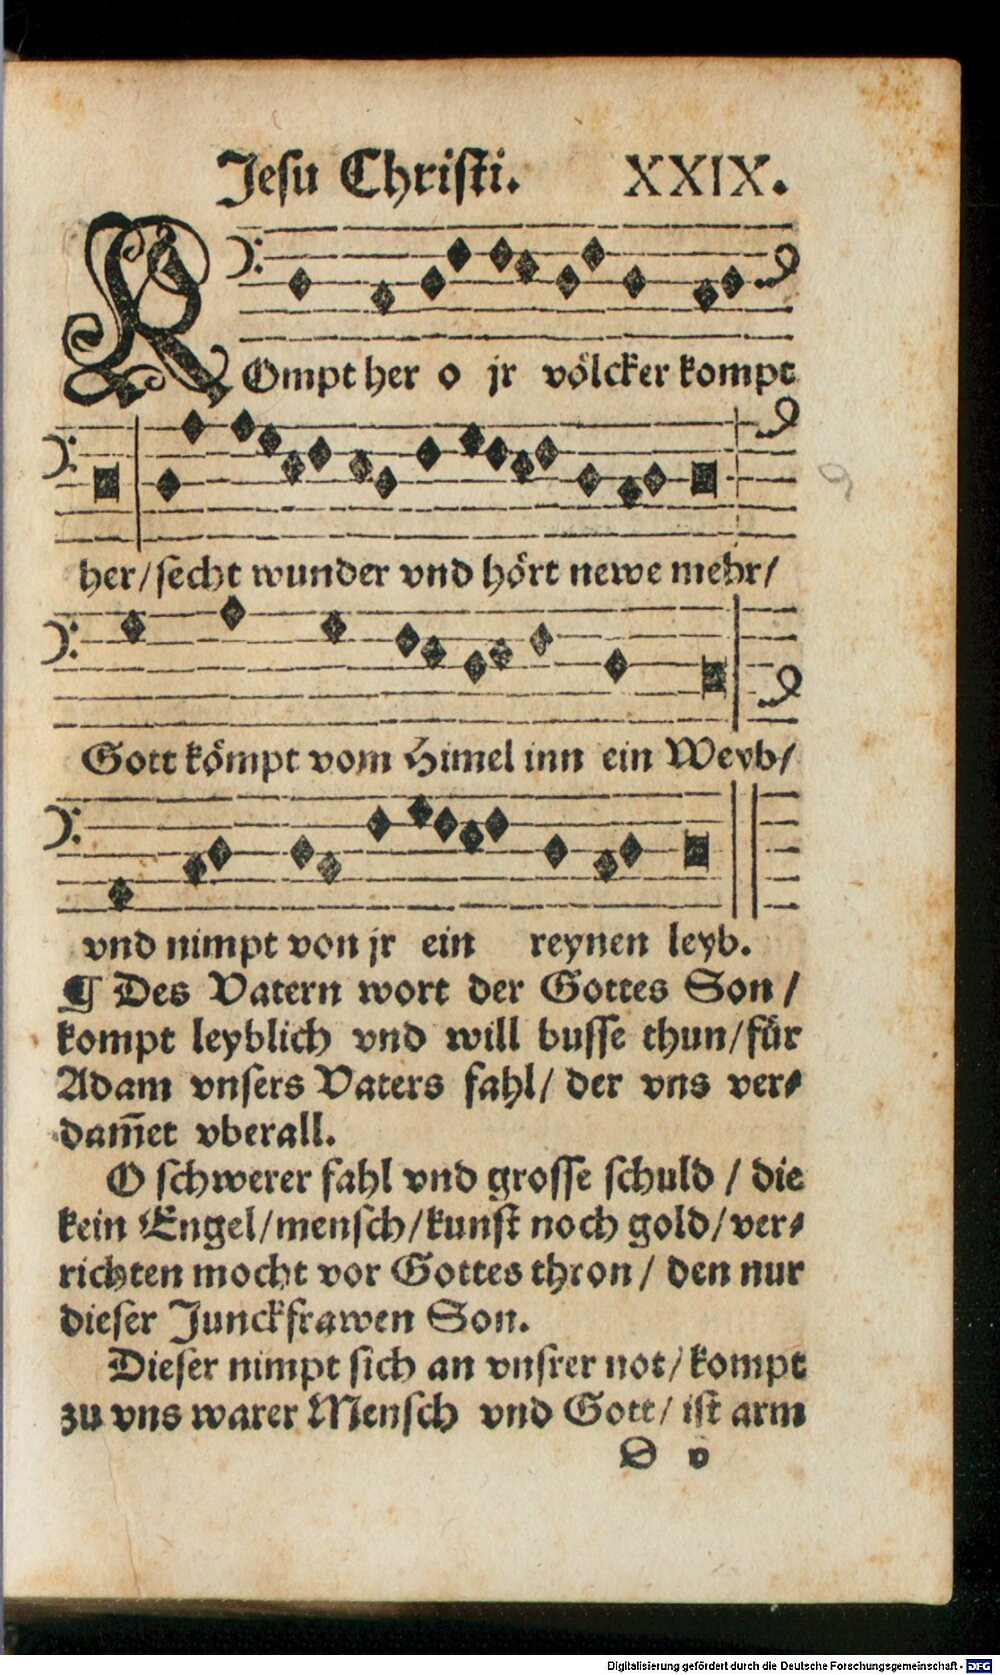 Jesu Christi. XXIX.
KOmpt her o jr völcker kompt
her/secht wunder vnd hört newe mehr/
Gott kömpt vom Himel inn ein Weyb/
vnd nimpt von jr ein reynen leyb.
¶ Des Vatern wort der Gottes Son/
kompt leyblich vnd will busse thun/für
Adam vnsers Vaters fahl/ der vns ver⸗
dam̄et vberall.
O schwerer fahl vnd grosse schuld / die
kein Engel/mensch/kunst noch gold/ver⸗
richten mocht vor Gottes thron/ den nur
dieser Junckfrawen Son.
Dieser nimpt sich an vnsrer not/kompt
zu vns warer Mensch vnd Gott/ ist arm
D v
Digitalisierung gefördert durch die Deutsche Forschungsgemeinschaft - DFG